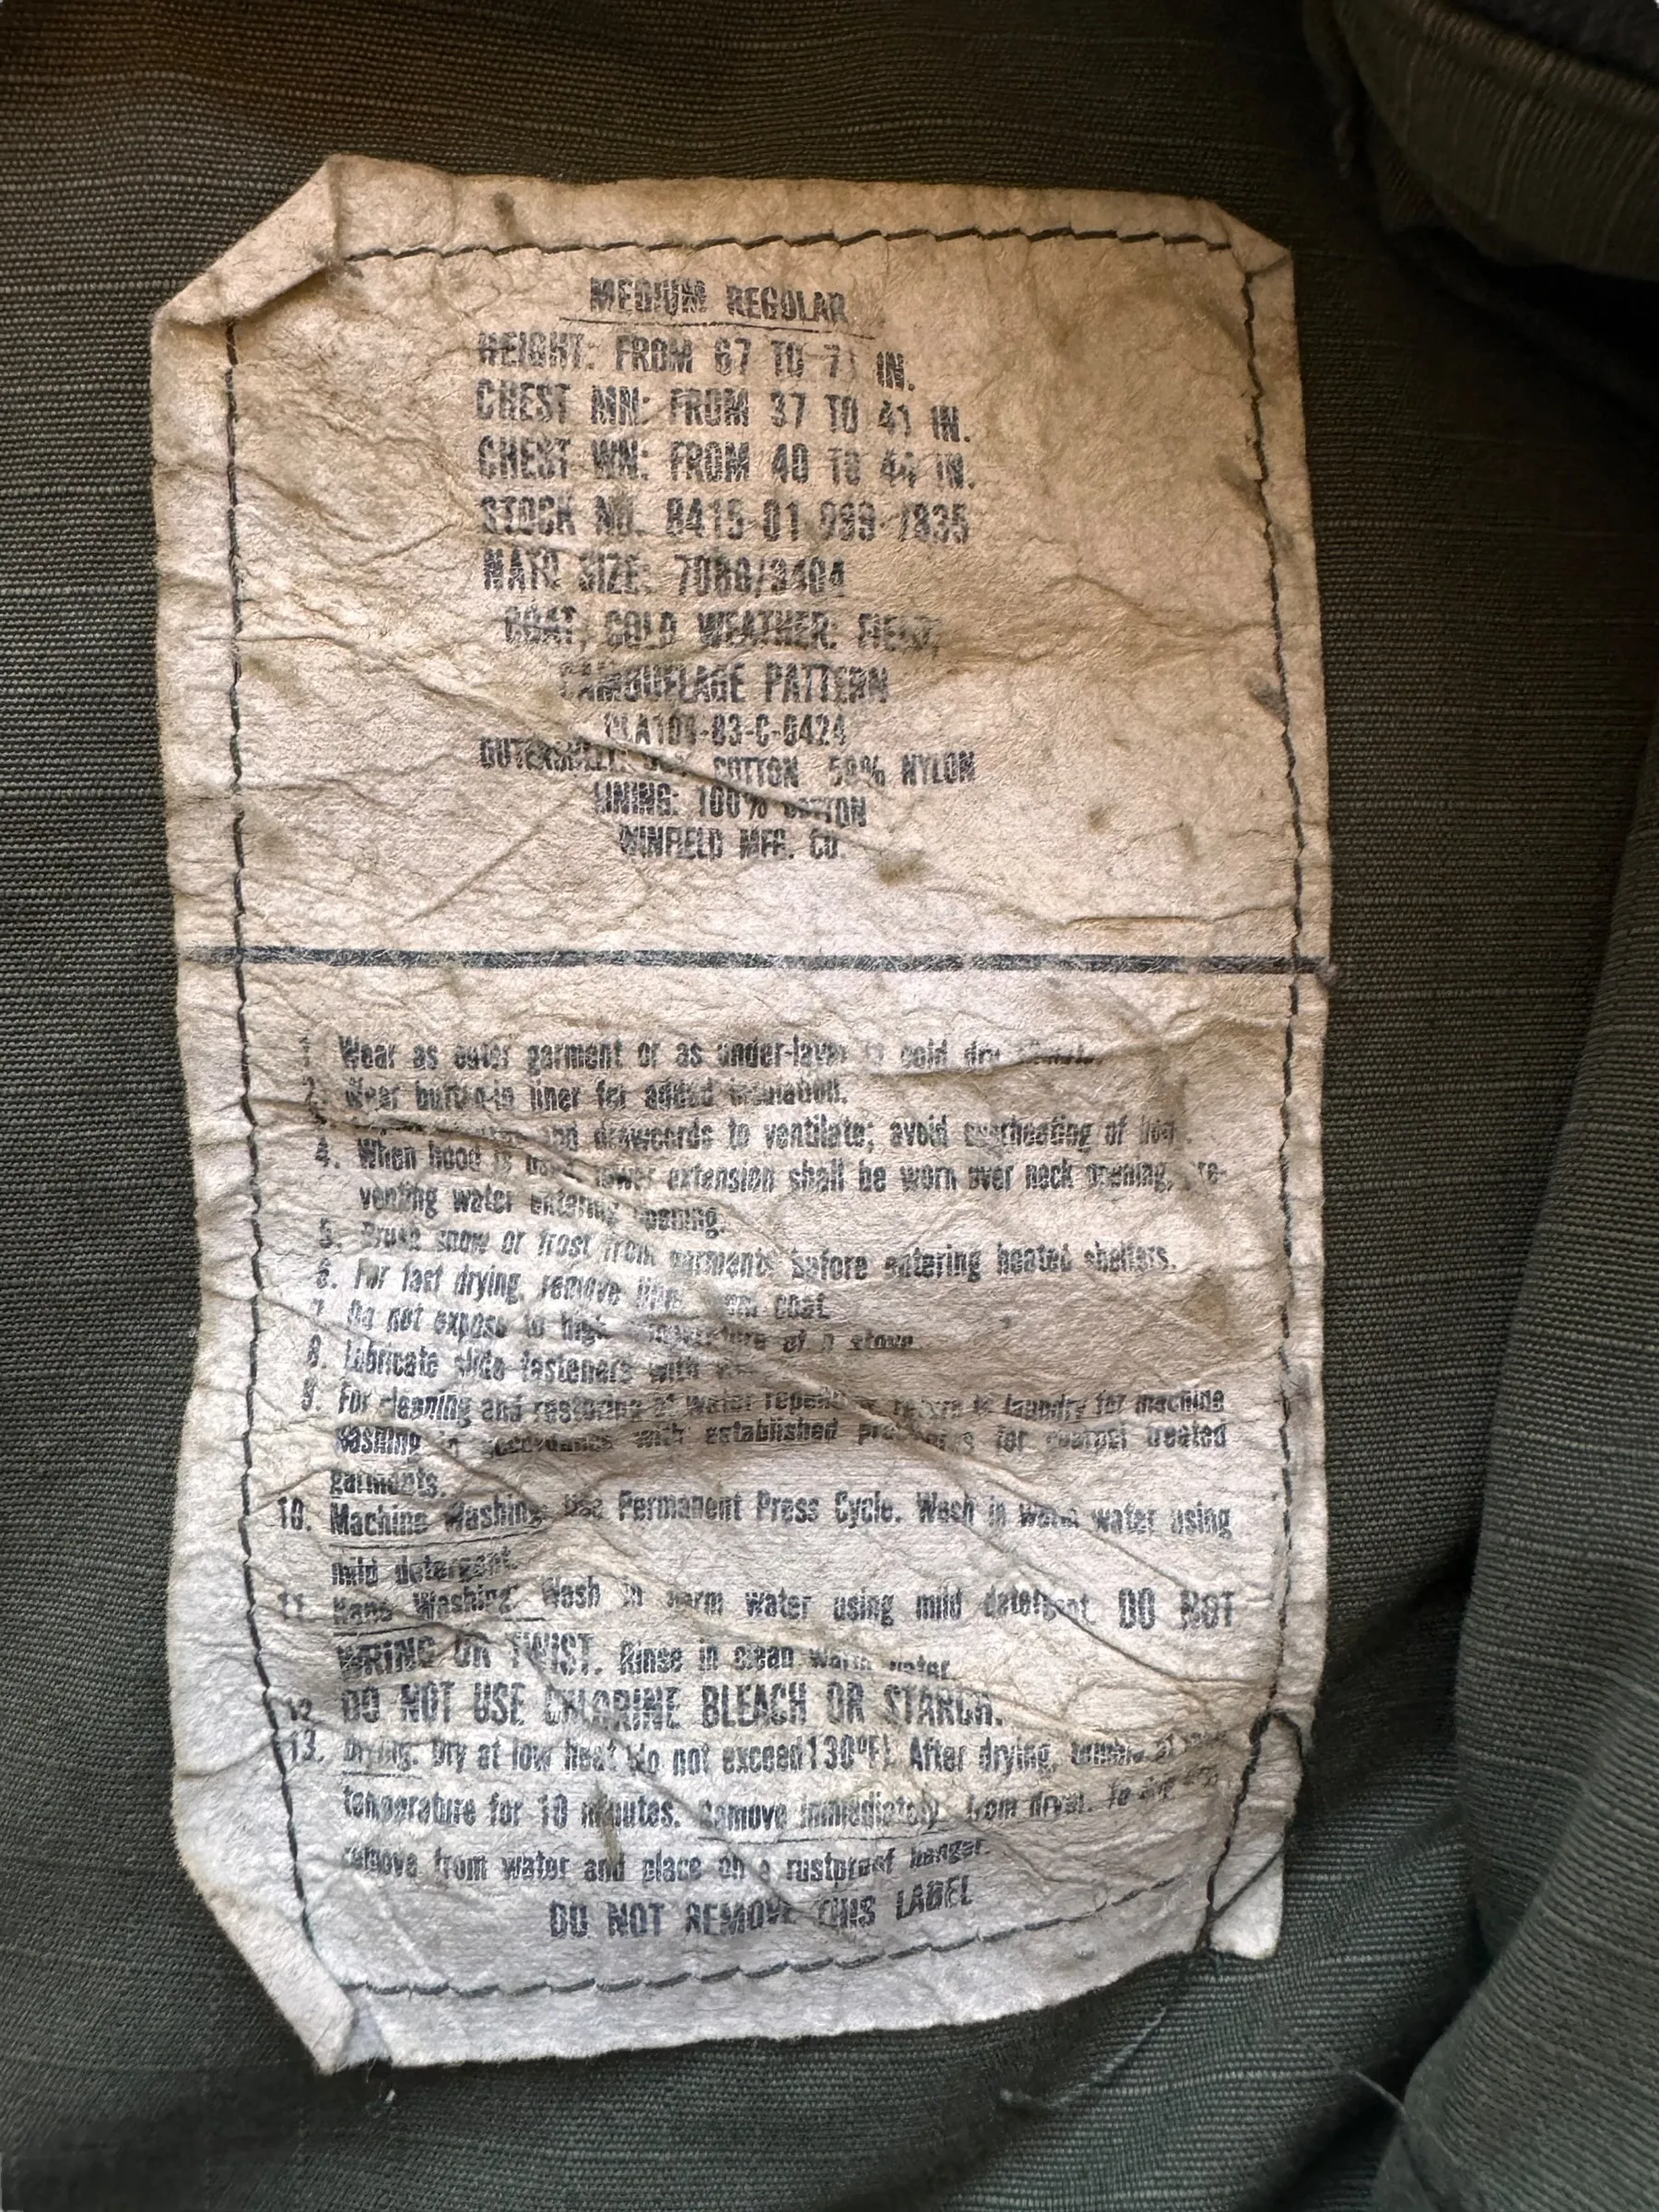 MEDIUM REGULAR
HEIGHT: FROM 67 TO 71 IN.
CHEST MN: FROM 37 TO 41 IN.
CHEST WN: FROM 40 TO 44 IN.
STOCK NO. 8415-01-099-7835
NATO SIZE: 7080/9404
COAT, COLD WEATHER, FIELD,
CAMOUFLAGE PATTERN
DLA100-83-C-0424
OUTERSHELL: 50% COTTON 50% NYLON
LINING: 100% COTTON
WINFIELD MFG. CO.
1. Wear as outer garment or as under-layer in cold dry climate.
2. Wear button-in liner for added insulation.
3. and drawcords to ventilate; avoid overheating of body.
4. When hood is used, lower extension shall be worn over neck opening, pre-
venting water entering opening.
5. Brush snow or frost from garments before entering heated shelters.
6. For fast drying, remove liner from coat.
7. Do not expose to high temperature of a stove.
8. Lubricate slide fasteners with
9. For cleaning and restoring of water repellency return to laundry for machine
washing in accordance with established procedures for quarpel treated
garments.
10. Machine Washing: Use Permanent Press Cycle. Wash in warm water using
mild detergent.
11. Hand Washing: Wash in warm water using mild detergent. DO NOT
WRING OR TWIST. Rinse in clean warm water.
12. DO NOT USE CHLORINE BLEACH OR STARCH.
13. Drying: Dry at low heat (do not exceed 130°F). After drying, tumble at
temperature for 10 minutes. Remove immediately from dryer. To drip dry,
remove from water and place on a rustproof hanger.
DO NOT REMOVE THIS LABEL